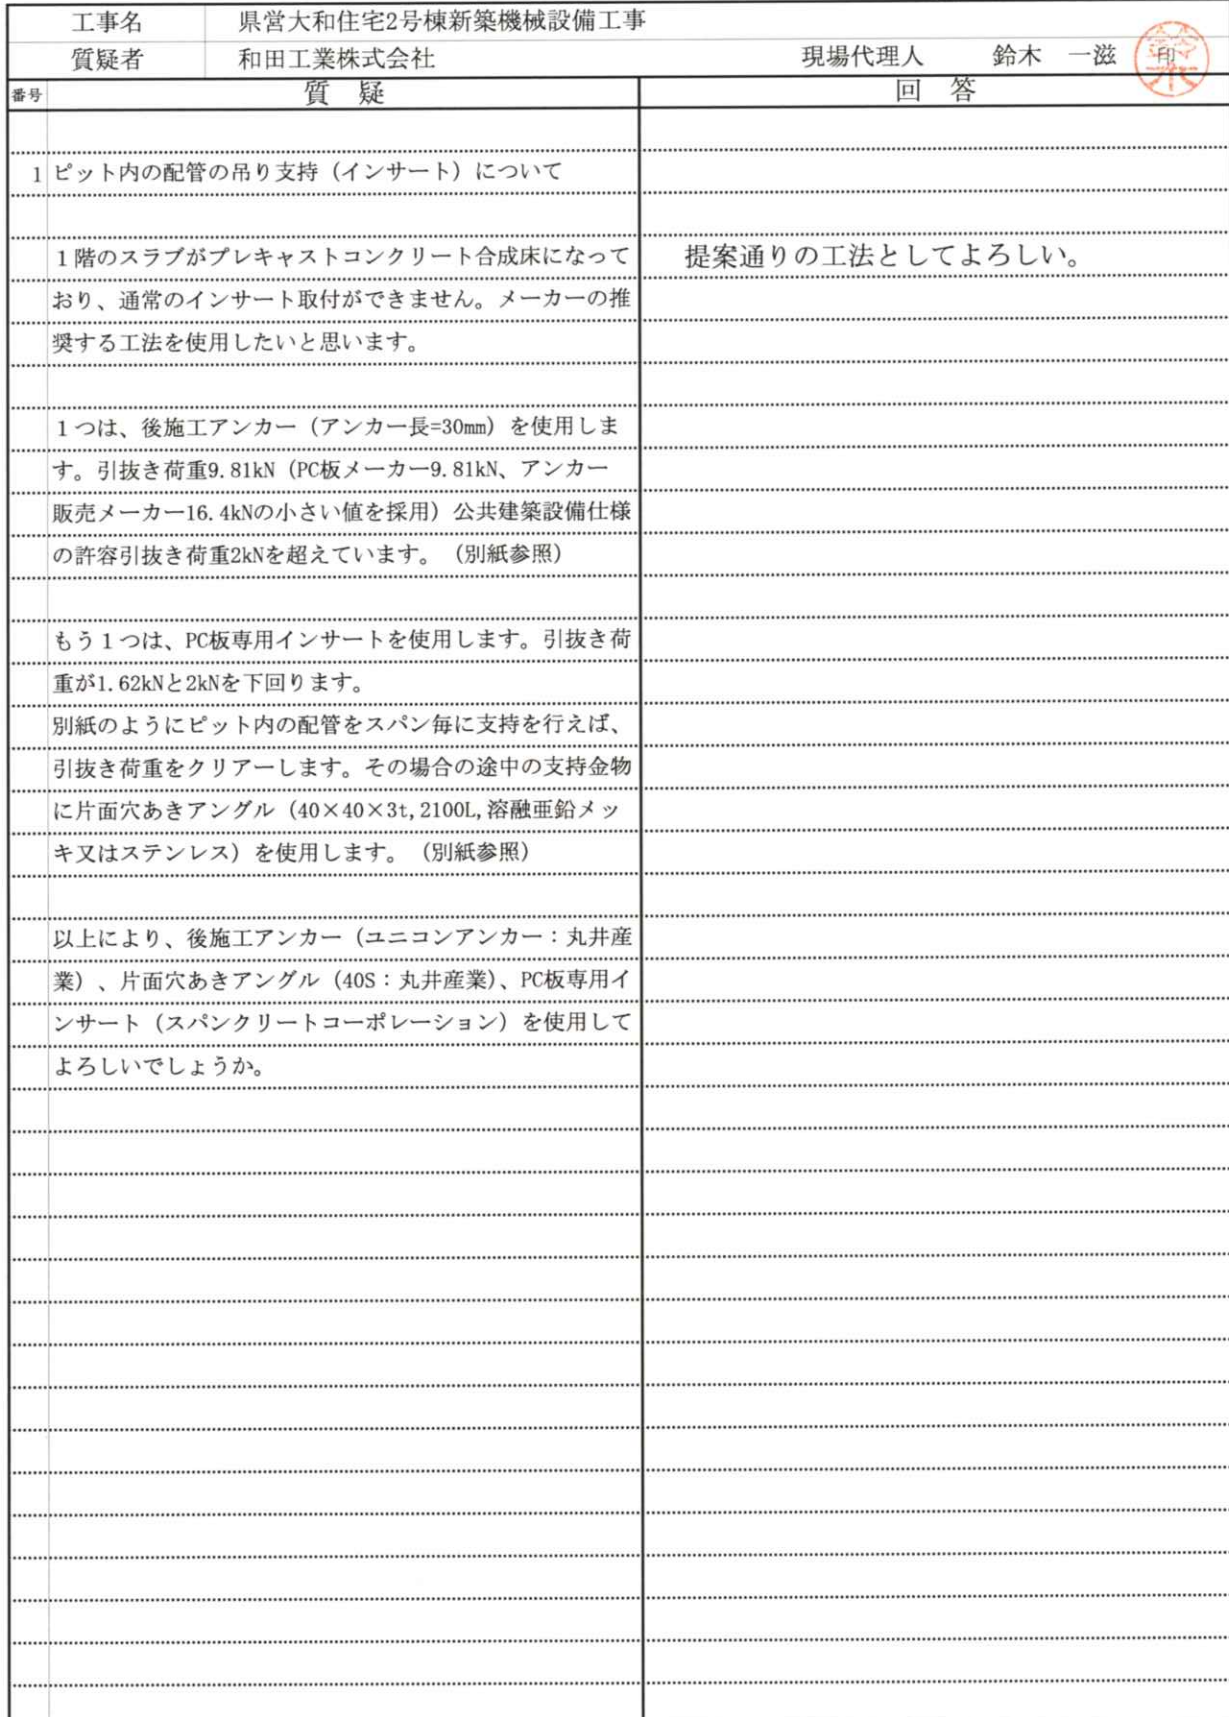 工事名 県営大和住宅2号棟新築機械設備工事
質疑者 和田工業株式会社 現場代理人 鈴木 一滋 印
番号 質 疑 回 答
1 ピット内の配管の吊り支持（インサート）について
1階のスラブがプレキャストコンクリート合成床になって
おり、通常のインサート取付ができません。メーカーの推
奨する工法を使用したいと思います。
1つは、後施工アンカー（アンカー長=30mm）を使用しま
す。引抜き荷重9.81kN（PC板メーカー9.81kN、アンカー
販売メーカー16.4kNの小さい値を採用）公共建築設備仕様
の許容引抜き荷重2kNを超えています。（別紙参照）
もう1つは、PC板専用インサートを使用します。引抜き荷
重が1.62kNと2kNを下回ります。
別紙のようにピット内の配管をスパン毎に支持を行えば、
引抜き荷重をクリアーします。その場合の途中の支持金物
に片面穴あきアングル（40×40×3t,2100L,溶融亜鉛メッ
キ又はステンレス）を使用します。（別紙参照）
以上により、後施工アンカー（ユニコンアンカー：丸井産
業）、片面穴あきアングル（40S：丸井産業）、PC板専用イ
ンサート（スパンクリートコーポレーション）を使用して
よろしいでしょうか。
提案通りの工法としてよろしい。